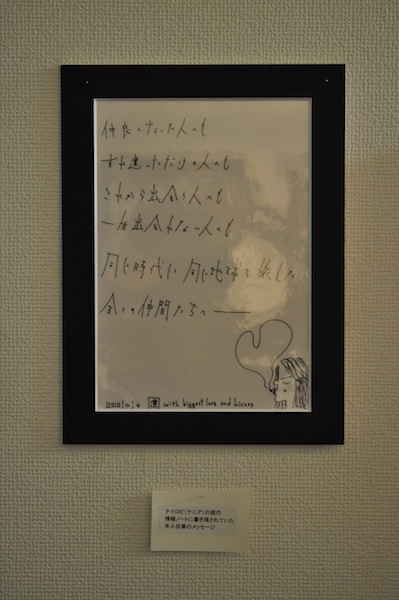 仲良くなった人にも
すれ違っただけの人にも
これから出会う人にも
一生出会わない人にも
同じ時代に 同じ地球を旅した
全ての仲間たちへ——
2010.4.4 with biggest love and kisses
ナイロビ（ケニア）の宿の
情報ノートに書き残されていた
本人自筆のメッセージ